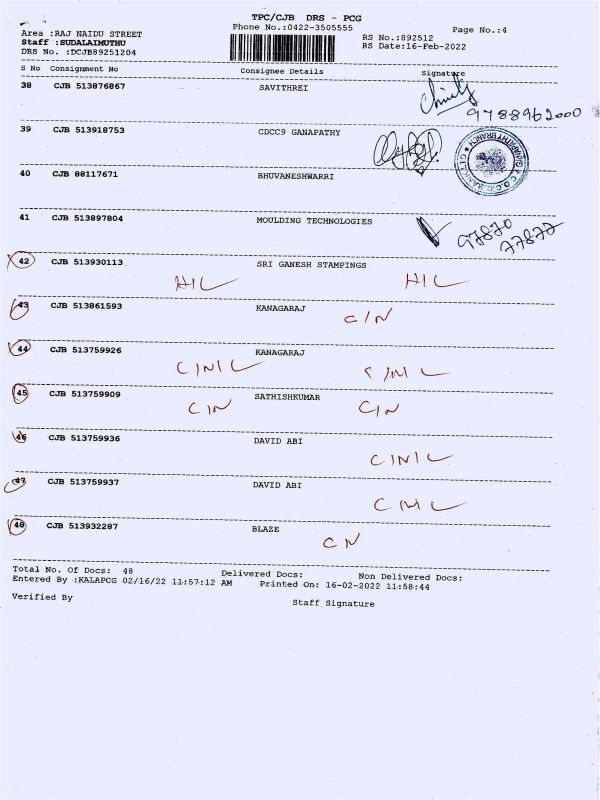 TPC/CJB DRS - PCG
Area :RAJ NAIDU STREET Phone No.:0422-3505555 Page No.:4
Staff :SUDALAIMUTHU RS No.:892512
DRS No. :DCJB89251204 RS Date:16-Feb-2022
S No Consignment No Consignee Details Signature
38 CJB 513876867 SAVITHREI
9788962000
39 CJB 513918753 CDCC9 GANAPATHY
40 CJB 88117671 BHUVANESHWARRI
41 CJB 513897804 MOULDING TECHNOLOGIES
97870
77877
42 CJB 513930113 SRI GANESH STAMPINGS
H/L H/L
43 CJB 513861593 KANAGARAJ
C/N
44 CJB 513759926 KANAGARAJ
C/N/L C/N/L
45 CJB 513759909 SATHISHKUMAR
C/N C/N
46 CJB 513759936 DAVID ABI
C/N/L
47 CJB 513759937 DAVID ABI
C/N/L
48 CJB 513932287 BLAZE
C/N
Total No. Of Docs: 48 Delivered Docs: Non Delivered Docs:
Entered By :KALAPCG 02/16/22 11:57:12 AM Printed On: 16-02-2022 11:58:44
Verified By Staff Signature